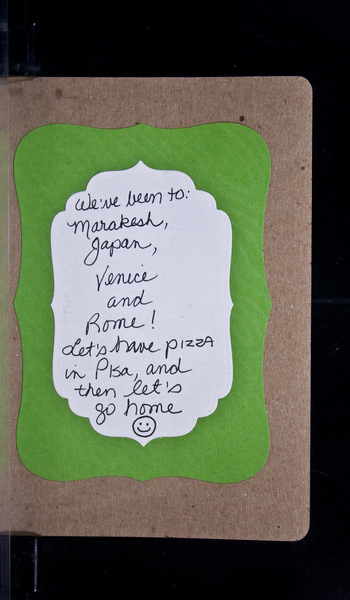 We've been to:
Marakesh,
Japan,
Venice
and
Rome!
Let's have pizza
in Pisa, and
then let's
go home